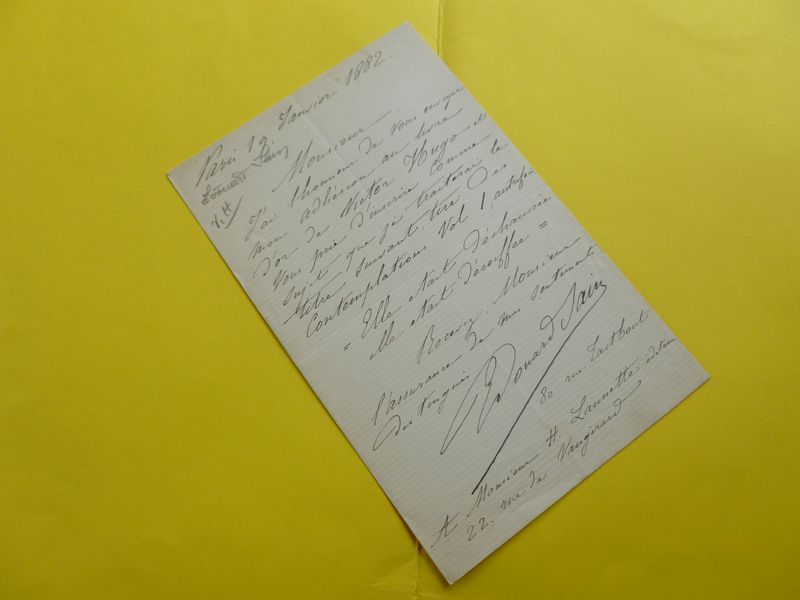 Paris 12 Janvier 1882.
Edouard Sain
V. H
Monsieur
J'ai l'honneur de vous envoyer
mon adhésion au livre
d'or de Victor Hugo et
vous prie d'inscrire comme
sujet que je traiterai le
titre suivant, tiré des
Contemplations Vol 1, autrefois
= Elle était déchaussée
elle était décoiffée =
Recevez, Monsieur
l'assurance de mes sentiments
distingués
Edouard Sain
80 rue Taitbout
A Monsieur H. Launette éditeur
22, rue de Vaugirard.